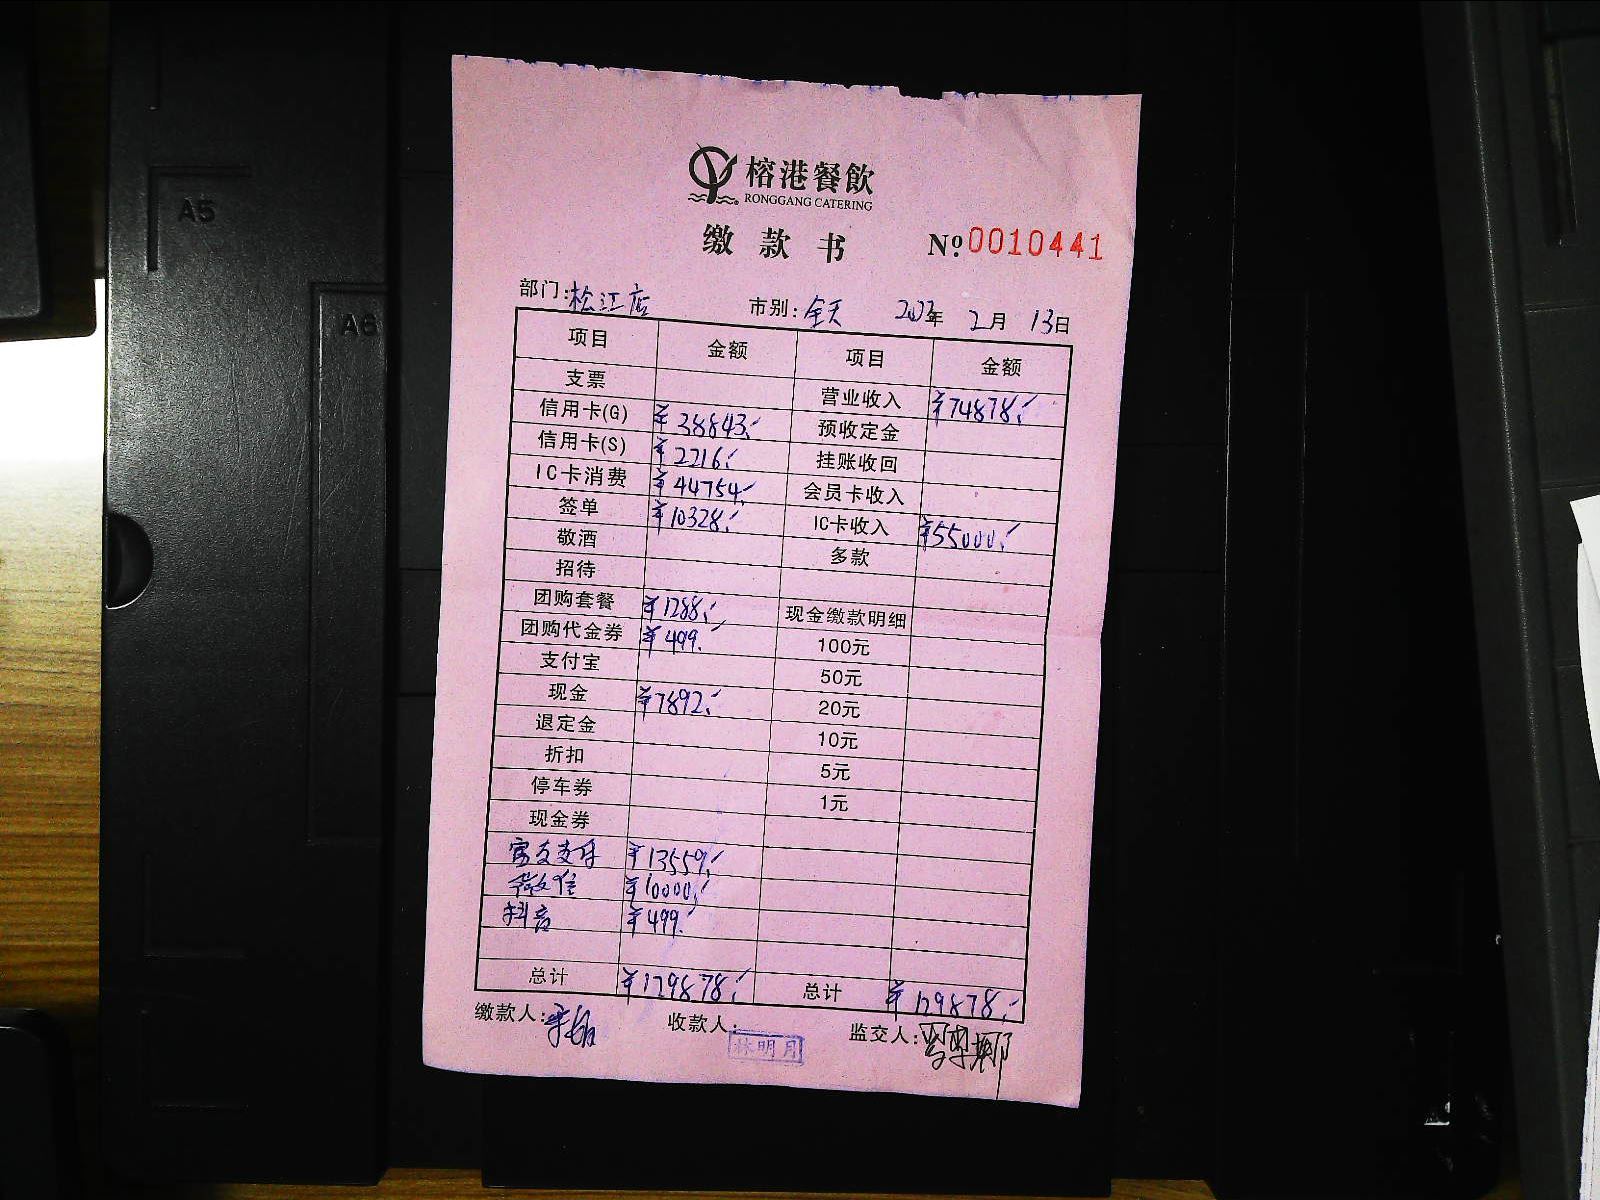 A5
A6
榕港餐飲
RONGGANG CATERING
缴款书 №0010441
部门:松江店 市别:全天 2023年 2月 13日
项目 金额 项目 金额
支票 营业收入 ¥74878.-
信用卡(G) ¥38843.- 预收定金
信用卡(S) ¥2216.- 挂账收回
IC卡消费 ¥44754.- 会员卡收入
签单 ¥10328.- IC卡收入 ¥55000.-
敬酒 多款
招待
团购套餐 ¥1288.- 现金缴款明细
团购代金券 ¥499.- 100元
支付宝 50元
现金 ¥7892.- 20元
退定金 10元
折扣 5元
停车券 1元
现金券
支付 ¥13559.-
微信 ¥10000.-
抖音 ¥499.-
总计 ¥129878.- 总计 ¥129878.-
缴款人: 收款人: 林明月 监交人: